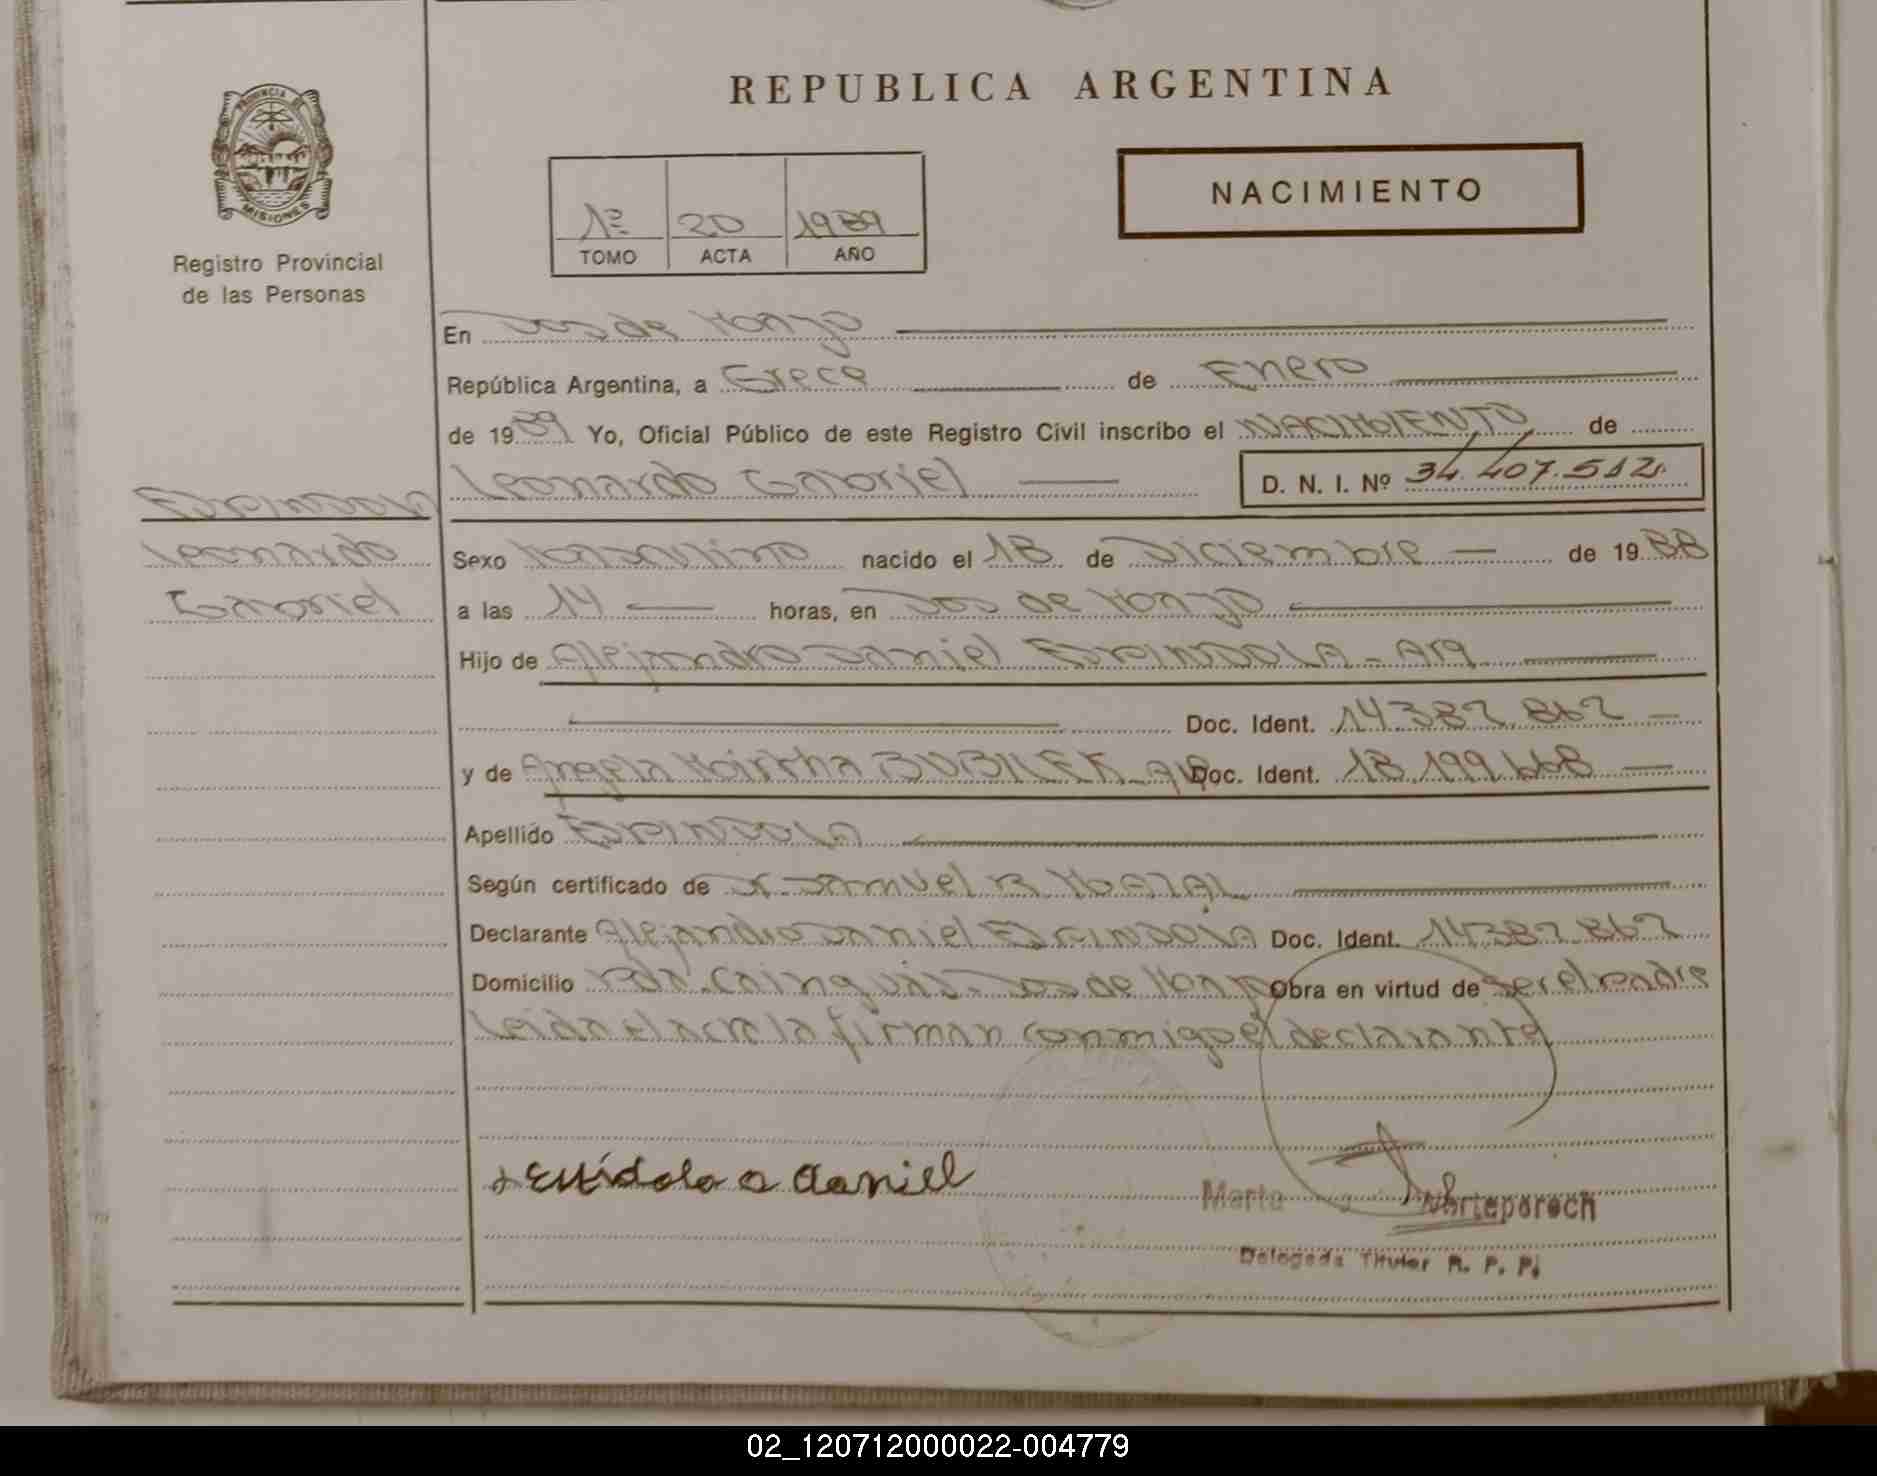 REPUBLICA ARGENTINA
PROVINCIA DE
MISIONES
Registro Provincial
de las Personas
NACIMIENTO
1º 20 1989
TOMO ACTA AÑO
En Dos de Mayo
República Argentina, a Trece de Enero
de 1989 Yo, Oficial Público de este Registro Civil inscribo el NACIMIENTO de
Leonardo Gabriel D. N. I. Nº 34.407.512
ESPINDOLA
Leonardo
Gabriel
Sexo Masculino nacido el 18 de Diciembre de 1988
a las 14 horas, en Dos de Mayo
Hijo de Alejandro Daniel ESPINDOLA - Arg
Doc. Ident. 14.382.862
y de Angela Mirtha Doc. Ident. 18.199.668
Apellido ESPINDOLA
Según certificado de Dr. Samuel R.
Declarante Alejandro Daniel ESPINDOLA Doc. Ident. 14382.862
Domicilio Pdo. Cainguás - Dos de Mayo Obra en virtud de ser el padre
Leida el acta la firman conmigo el declarante
daniel
Marta
Delegada Titular R. P. P.
02_120712000022-004779